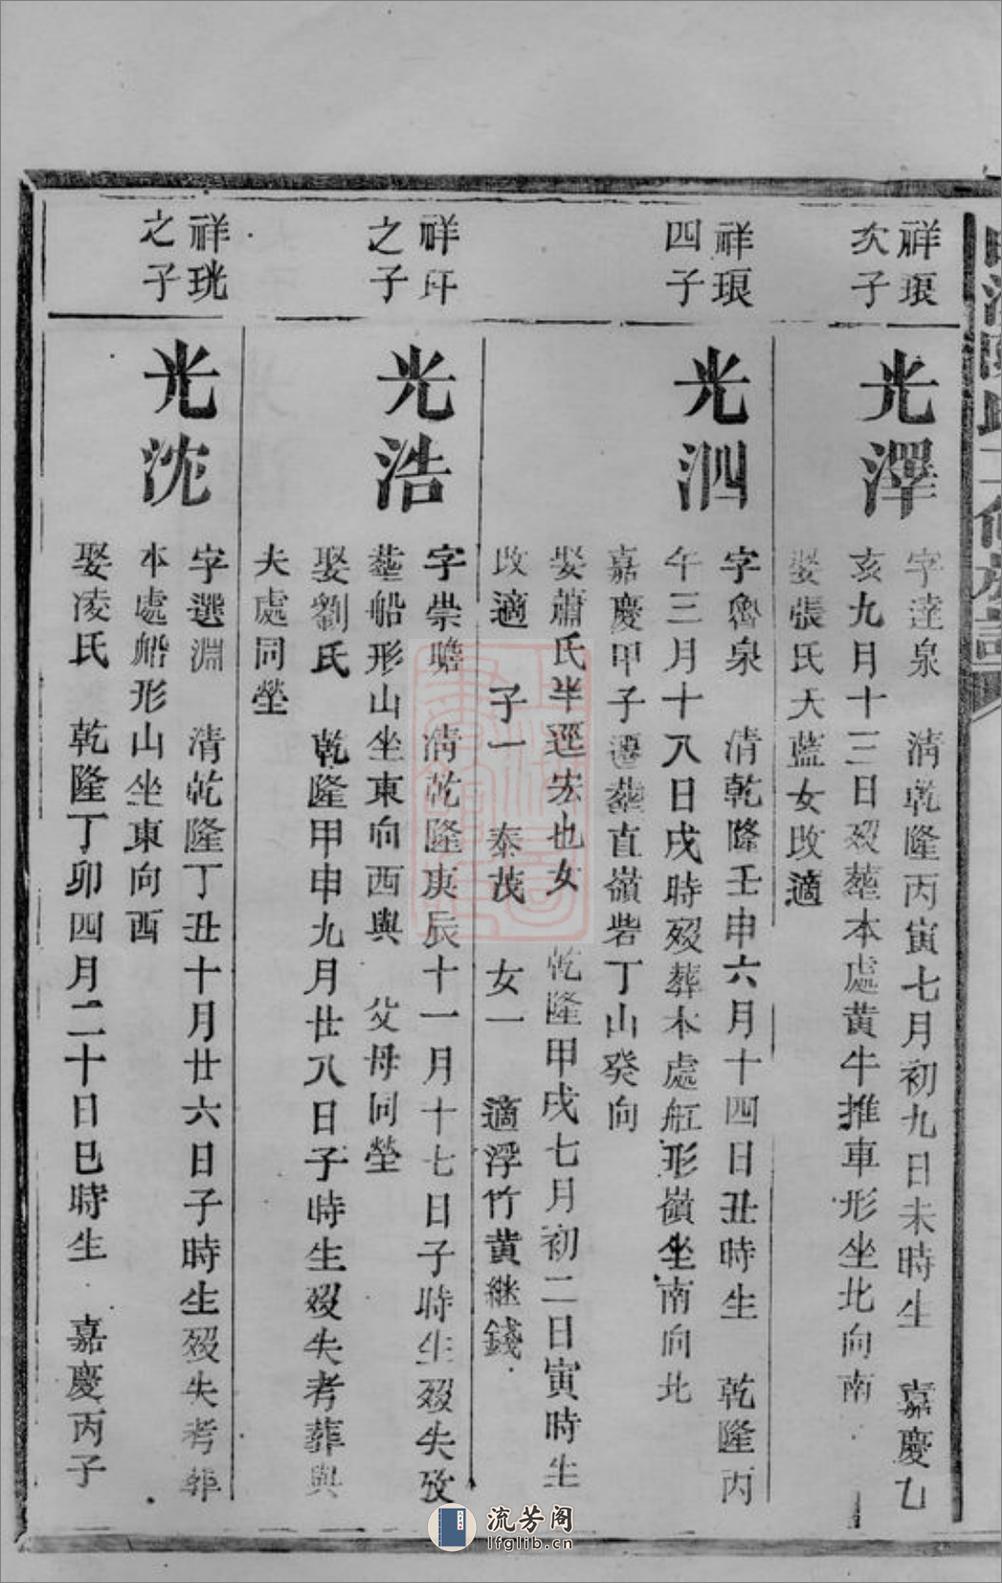 祥琅
次子
光澤
字逹泉　清乾隆丙寅七月初九日未時生　嘉慶乙
亥九月十三日歿葬本處黃牛推車形坐北向南
娶張氏大藍女改適
祥琅
四子
光泗
字魯泉　清乾隆壬申六月十四日丑時生　乾隆丙
午三月十八日戌時歿葬本處舡形嶺坐南向北
嘉慶甲子遷葬直嶺砦丁山癸向
娶蕭氏半逕宏也女　乾隆甲戌七月初二日寅時生
改適　子一　泰茂　女一　適浮竹黃繼錢
祥
之子
光浩
字崇瞻　清乾隆庚辰十一月十七日子時生歿失攷
葬船形山坐東向西與　父母同塋
娶劉氏　乾隆甲申九月廿八日子時生歿失考葬與
夫處同塋
祥珖
之子
光沈
字選淵　清乾隆丁丑十月廿六日子時生歿失考葬
本處船形山坐東向西
娶凌氏　乾隆丁卯四月二十日巳時生　嘉慶丙子
流芳阁
lfglib.cn